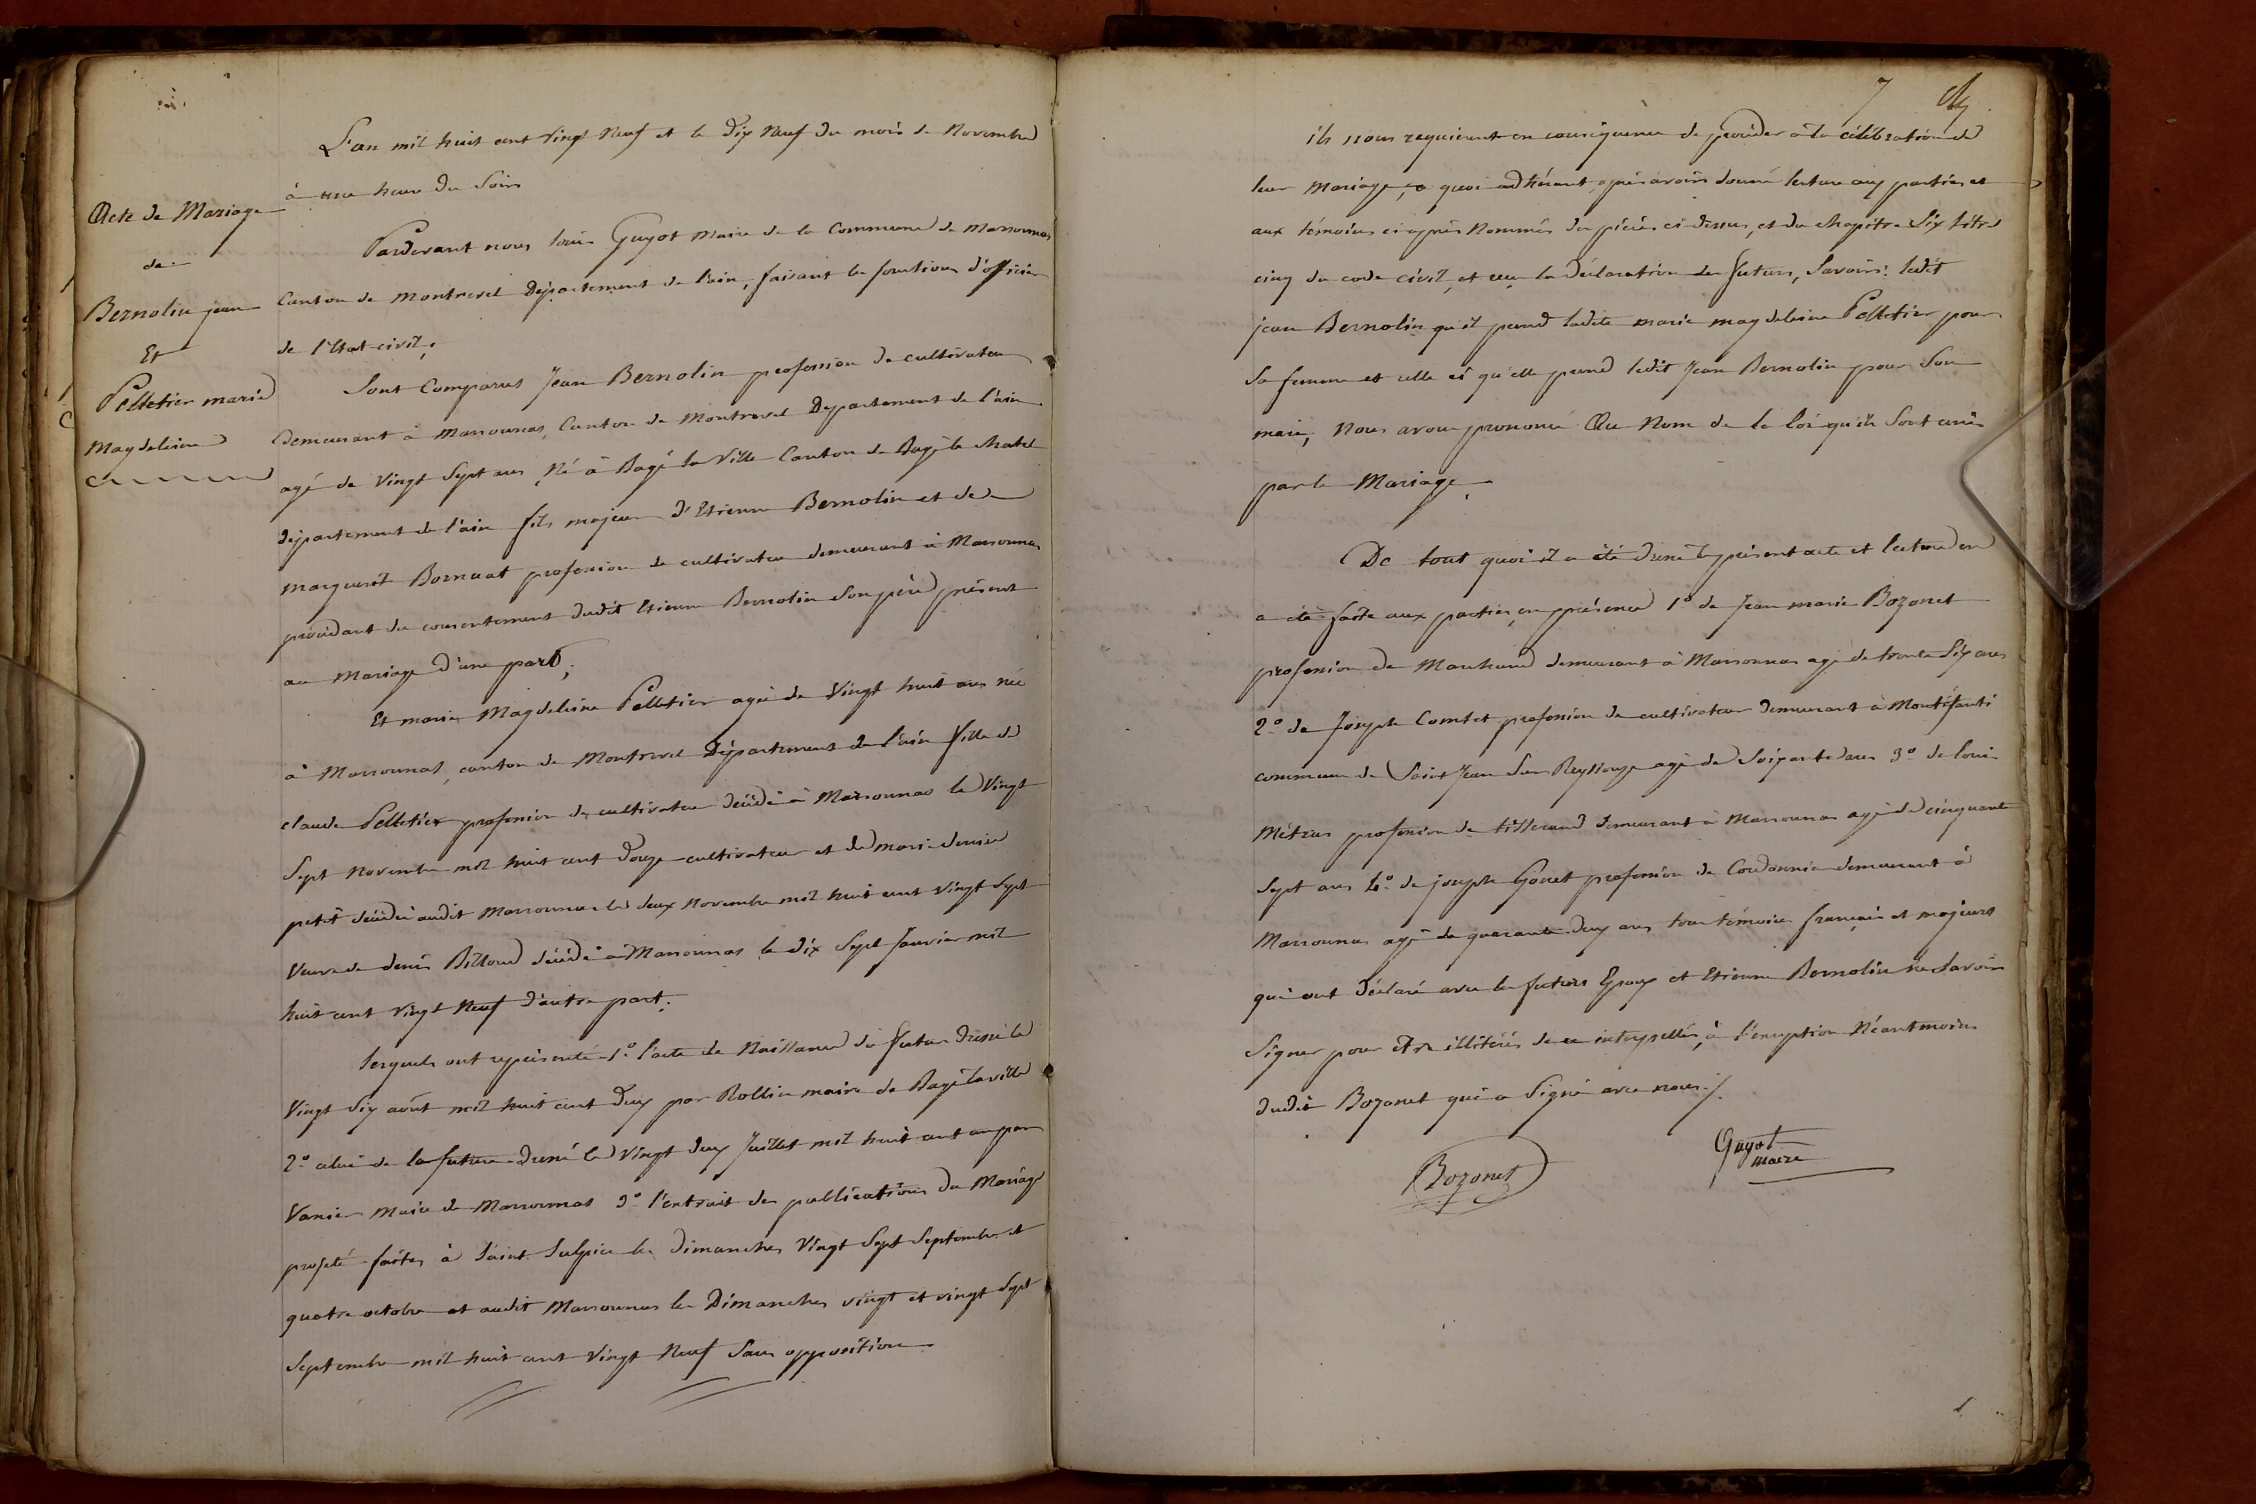 L'an mil huit cent vingt Neuf et le Dix Neuf du mois de Novembre
à une heure du Soir
Acte de Mariage
de
Bernolin jean
Et
Pelletier marie
Magdeleine
Pardevant nous louis Guyot Maire de la Commune de Marsonnas
Canton de Montrevel Département de l'ain, faisant les fonctions d'officier
de l'Etat civil;
Sont Comparus Jean Bernolin profession de cultivateur
demeurant à Marsonnas, Canton de Montrevel Département de l'ain
agé de Vingt Sept ans Né à Bagé la Ville Canton de Bagé le chatel
département de l'ain fils majeur d'Etienne Bernolin et de
marguerit profession de cultivateur demeurant à Marsonnas
procédant du consentement dudit Etienne Bernolin Son père présent
au Mariage d'une part;
Et marie Magdeleine Pelletier agée de Vingt huit ans née
à Marsonnas, canton de Montrevel Département de l'ain fille de
claude Pelletier profession de cultivateur décédé à Marsonnas le Vingt
Sept Novembre mil huit cent Douze cultivateur et de marie denise
petit décédée audit Marsonnas le deux Novembre mil huit cent vingt Sept
Veuve de denis Billoud décédé à Marsonnas le dix Sept Janvier mil
huit cent vingt Neuf d'autre part.
lesquels ont représenté 1º l'acte de Naissance du futur Dressé le
Vingt Six août mil huit cent Deux par Rollin maire de Bagé laville
2º celui de la future Dressé le Vingt deux Juillet mil huit cent un par
Vanier Maire de Marsonnas 3º l'extrait des publications du Mariage
projeté faites à Saint Sulpice les dimanches Vingt Sept Septembre et
quatre octobre et audit Marsonnas les Dimanches vingt et vingt Sept
Septembre mil huit cent Vingt Neuf Sans opposition
7
ils nous requierent en conséquence de procéder à la célébration de
leur Mariage, a quoi adhérant, après avoir donné lecture aux parties et
aux témoins ci après Nommés des pièces ci dessus, et du chapitre Six titre
cinq du code civil, et vu la déclaration des futurs, Savoir: ledit
jean Bernolin qu'il prend ladite marie magdeleine Pelletier pour
Sa femme et celle ci qu'elle prend ledit Jean Bernolin pour Son
mari, Nous avons prononcé Au Nom de la loi qu'ils Sont unis
par le Mariage.
De tout quoi il a été dressé le présent acte et lecture en
a été faite aux parties, en présence 1º de Jean marie Bozonet
profession de Marchand demeurant à Marsonnas agé de trente Six ans
2º de Joseph Comtet profession de cultivateur demeurant à Montéfanti
commune de Saint Jean Sur Reyssouze agé de Soixante ans 3º de louis
Métras profession de tisserand demeurant à Marsonnas agé de cinquante
Sept ans 4º de joseph Gonet profession de Cordonnier demeurant à
Marsonnas agé de quarante Deux ans tous témoins français et majeurs
qui ont déclaré avec les futurs Epoux et Etienne Bernolin ne Savoir
Signer pour être illitérés de ce interpellés, à l'exception Néantmoins
dudit Bozonet qui a Signé avec nous./.
Bozonet
Guyot
maire